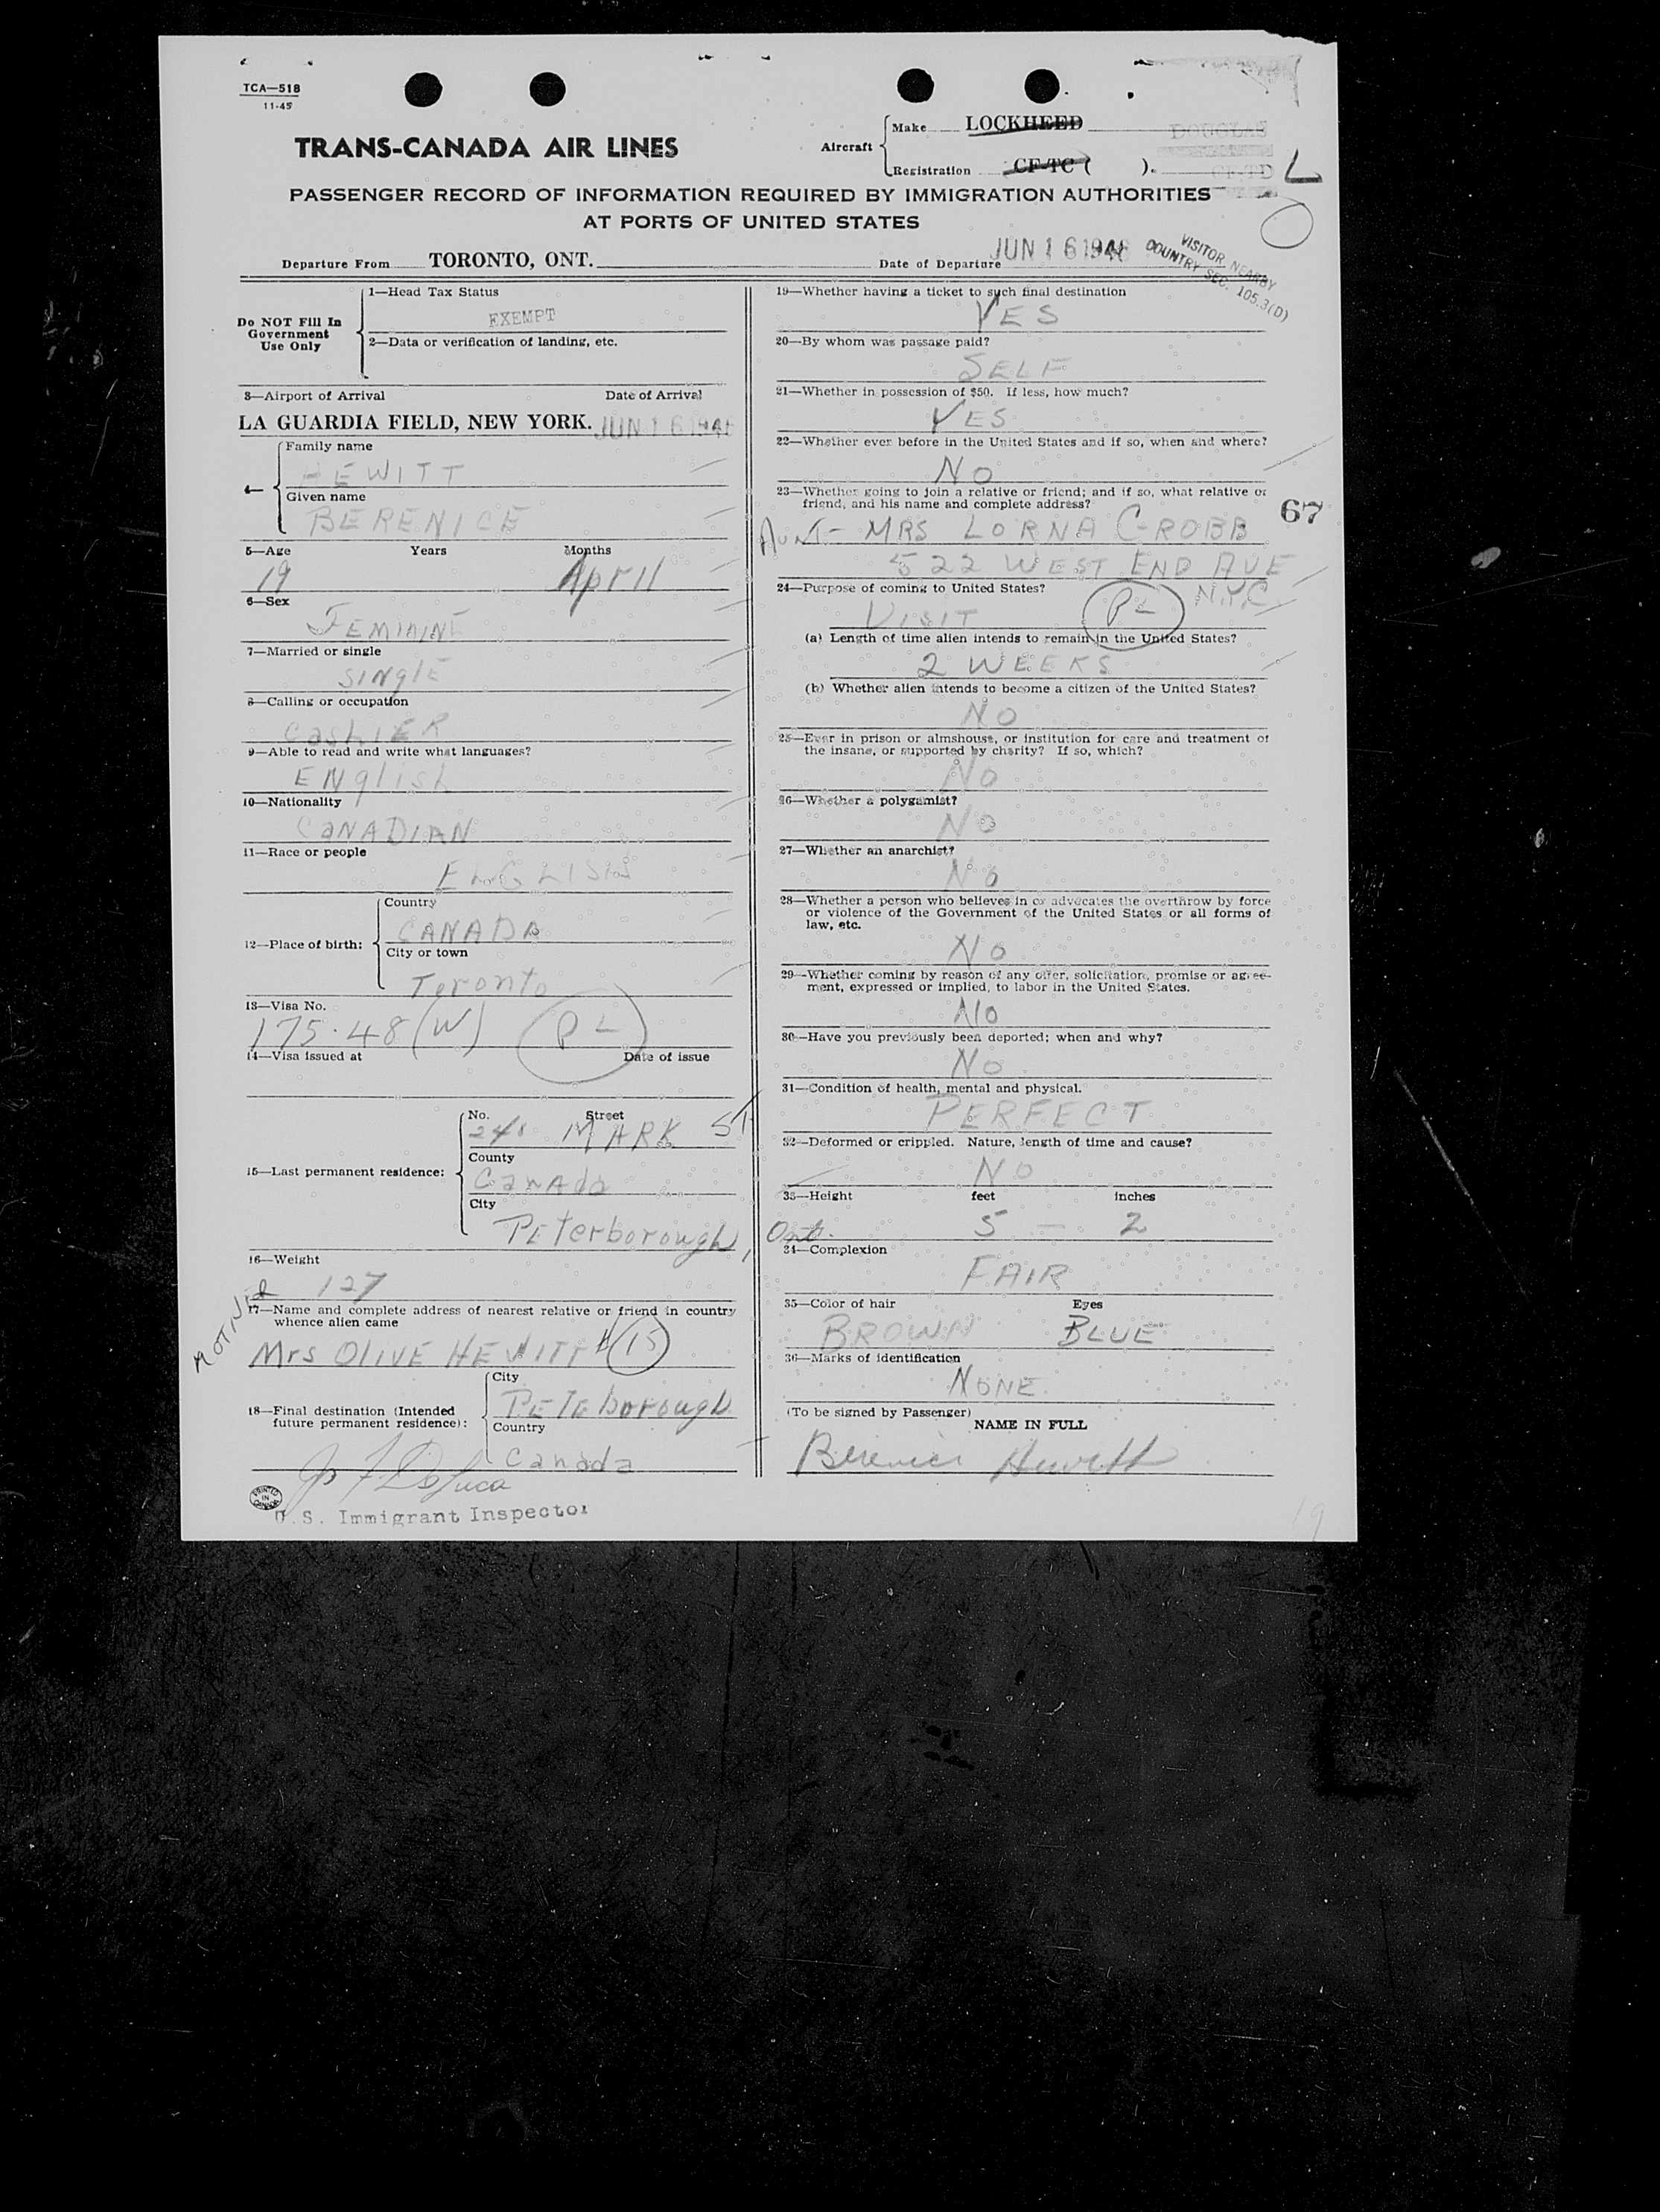 TCA—518
11-45
TRANS-CANADA AIR LINES
Aircraft
Make LOCKHEED
DOUGLAS
Registration CF-TC ( ).
CF-TD L
PASSENGER RECORD OF INFORMATION REQUIRED BY IMMIGRATION AUTHORITIES
AT PORTS OF UNITED STATES
Departure From TORONTO, ONT.
Date of Departure JUN 16 1948
VISITOR NEARBY
COUNTRY SEC. 105.3(D)
Do NOT Fill In
Government
Use Only
1—Head Tax Status
EXEMPT
2—Data or verification of landing, etc.
3—Airport of Arrival Date of Arrival
LA GUARDIA FIELD, NEW YORK. JUN 16 1948
4—
Family name
HEWITT
Given name
BERENICE
5—Age Years Months
19 April
6—Sex
FEMININE
7—Married or single
SINglE
8—Calling or occupation
CashIER
9—Able to read and write what languages?
ENglish
10—Nationality
CANADIAN
11—Race or people
ENGLISH
12—Place of birth:
Country
CANADA
City or town
Toronto
13—Visa No.
175·48(W) PL
14—Visa issued at Date of issue
15—Last permanent residence:
No. Street
MARK ST
County
CanAda
City
PEterborough, Ont.
16—Weight
127
17—Name and complete address of nearest relative or friend in country
whence alien came
Mrs OLIVE HEWITT 15
18—Final destination (Intended
future permanent residence):
City
PETEborough
Country
Canada
PRINTED
IN
CANADA
U.S. Immigrant Inspector
19—Whether having a ticket to such final destination
YES
20—By whom was passage paid?
SELF
21—Whether in possession of $50. If less, how much?
YES
22—Whether ever before in the United States and if so, when and where?
NO
23—Whether going to join a relative or friend; and if so, what relative or
friend, and his name and complete address?
67
Aunt- MRS LORNA C-ROBB
522 WEST END AVE
N.Y.C
24—Purpose of coming to United States?
VISIT PL
(a) Length of time alien intends to remain in the United States?
2 WEEKS
(b) Whether alien intends to become a citizen of the United States?
NO
25—Ever in prison or almshouse, or institution for care and treatment of
the insane, or supported by charity? If so, which?
No
26—Whether a polygamist?
No
27—Whether an anarchist?
No
28—Whether a person who believes in or advocates the overthrow by force
or violence of the Government of the United States or all forms of
law, etc.
No
29—Whether coming by reason of any offer, solicitation, promise or agree-
ment, expressed or implied, to labor in the United States.
No
30—Have you previously been deported; when and why?
No
31—Condition of health, mental and physical.
PERFECT
32—Deformed or crippled. Nature, length of time and cause?
NO
33—Height feet inches
5 — 2
34—Complexion
FAIR
35—Color of hair Eyes
BROWN BLUE
36—Marks of identification
NONE
(To be signed by Passenger)
NAME IN FULL
Berenice Hewitt
19